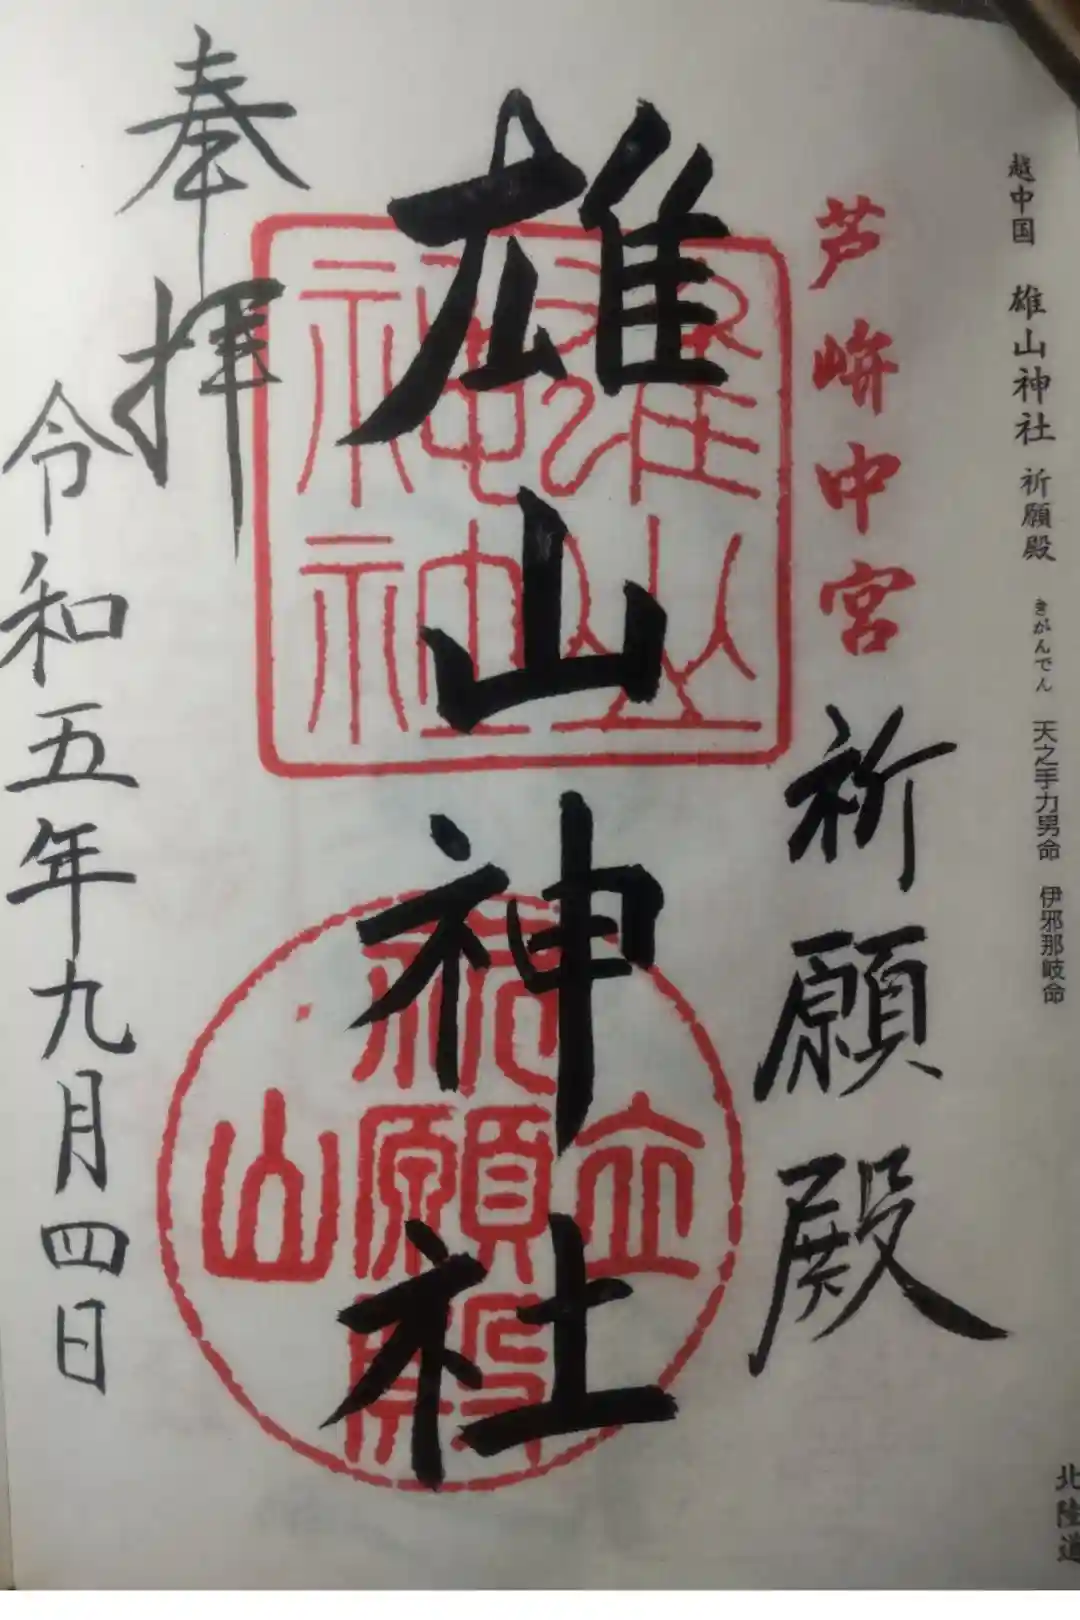 越中国 雄山神社 祈願殿 きがんでん 天之手力男命 伊邪那岐命
北陸道
芦峅中宮
祈願殿
雄山神社
雄山神社
立山
祈願殿
奉拝
令和五年九月四日